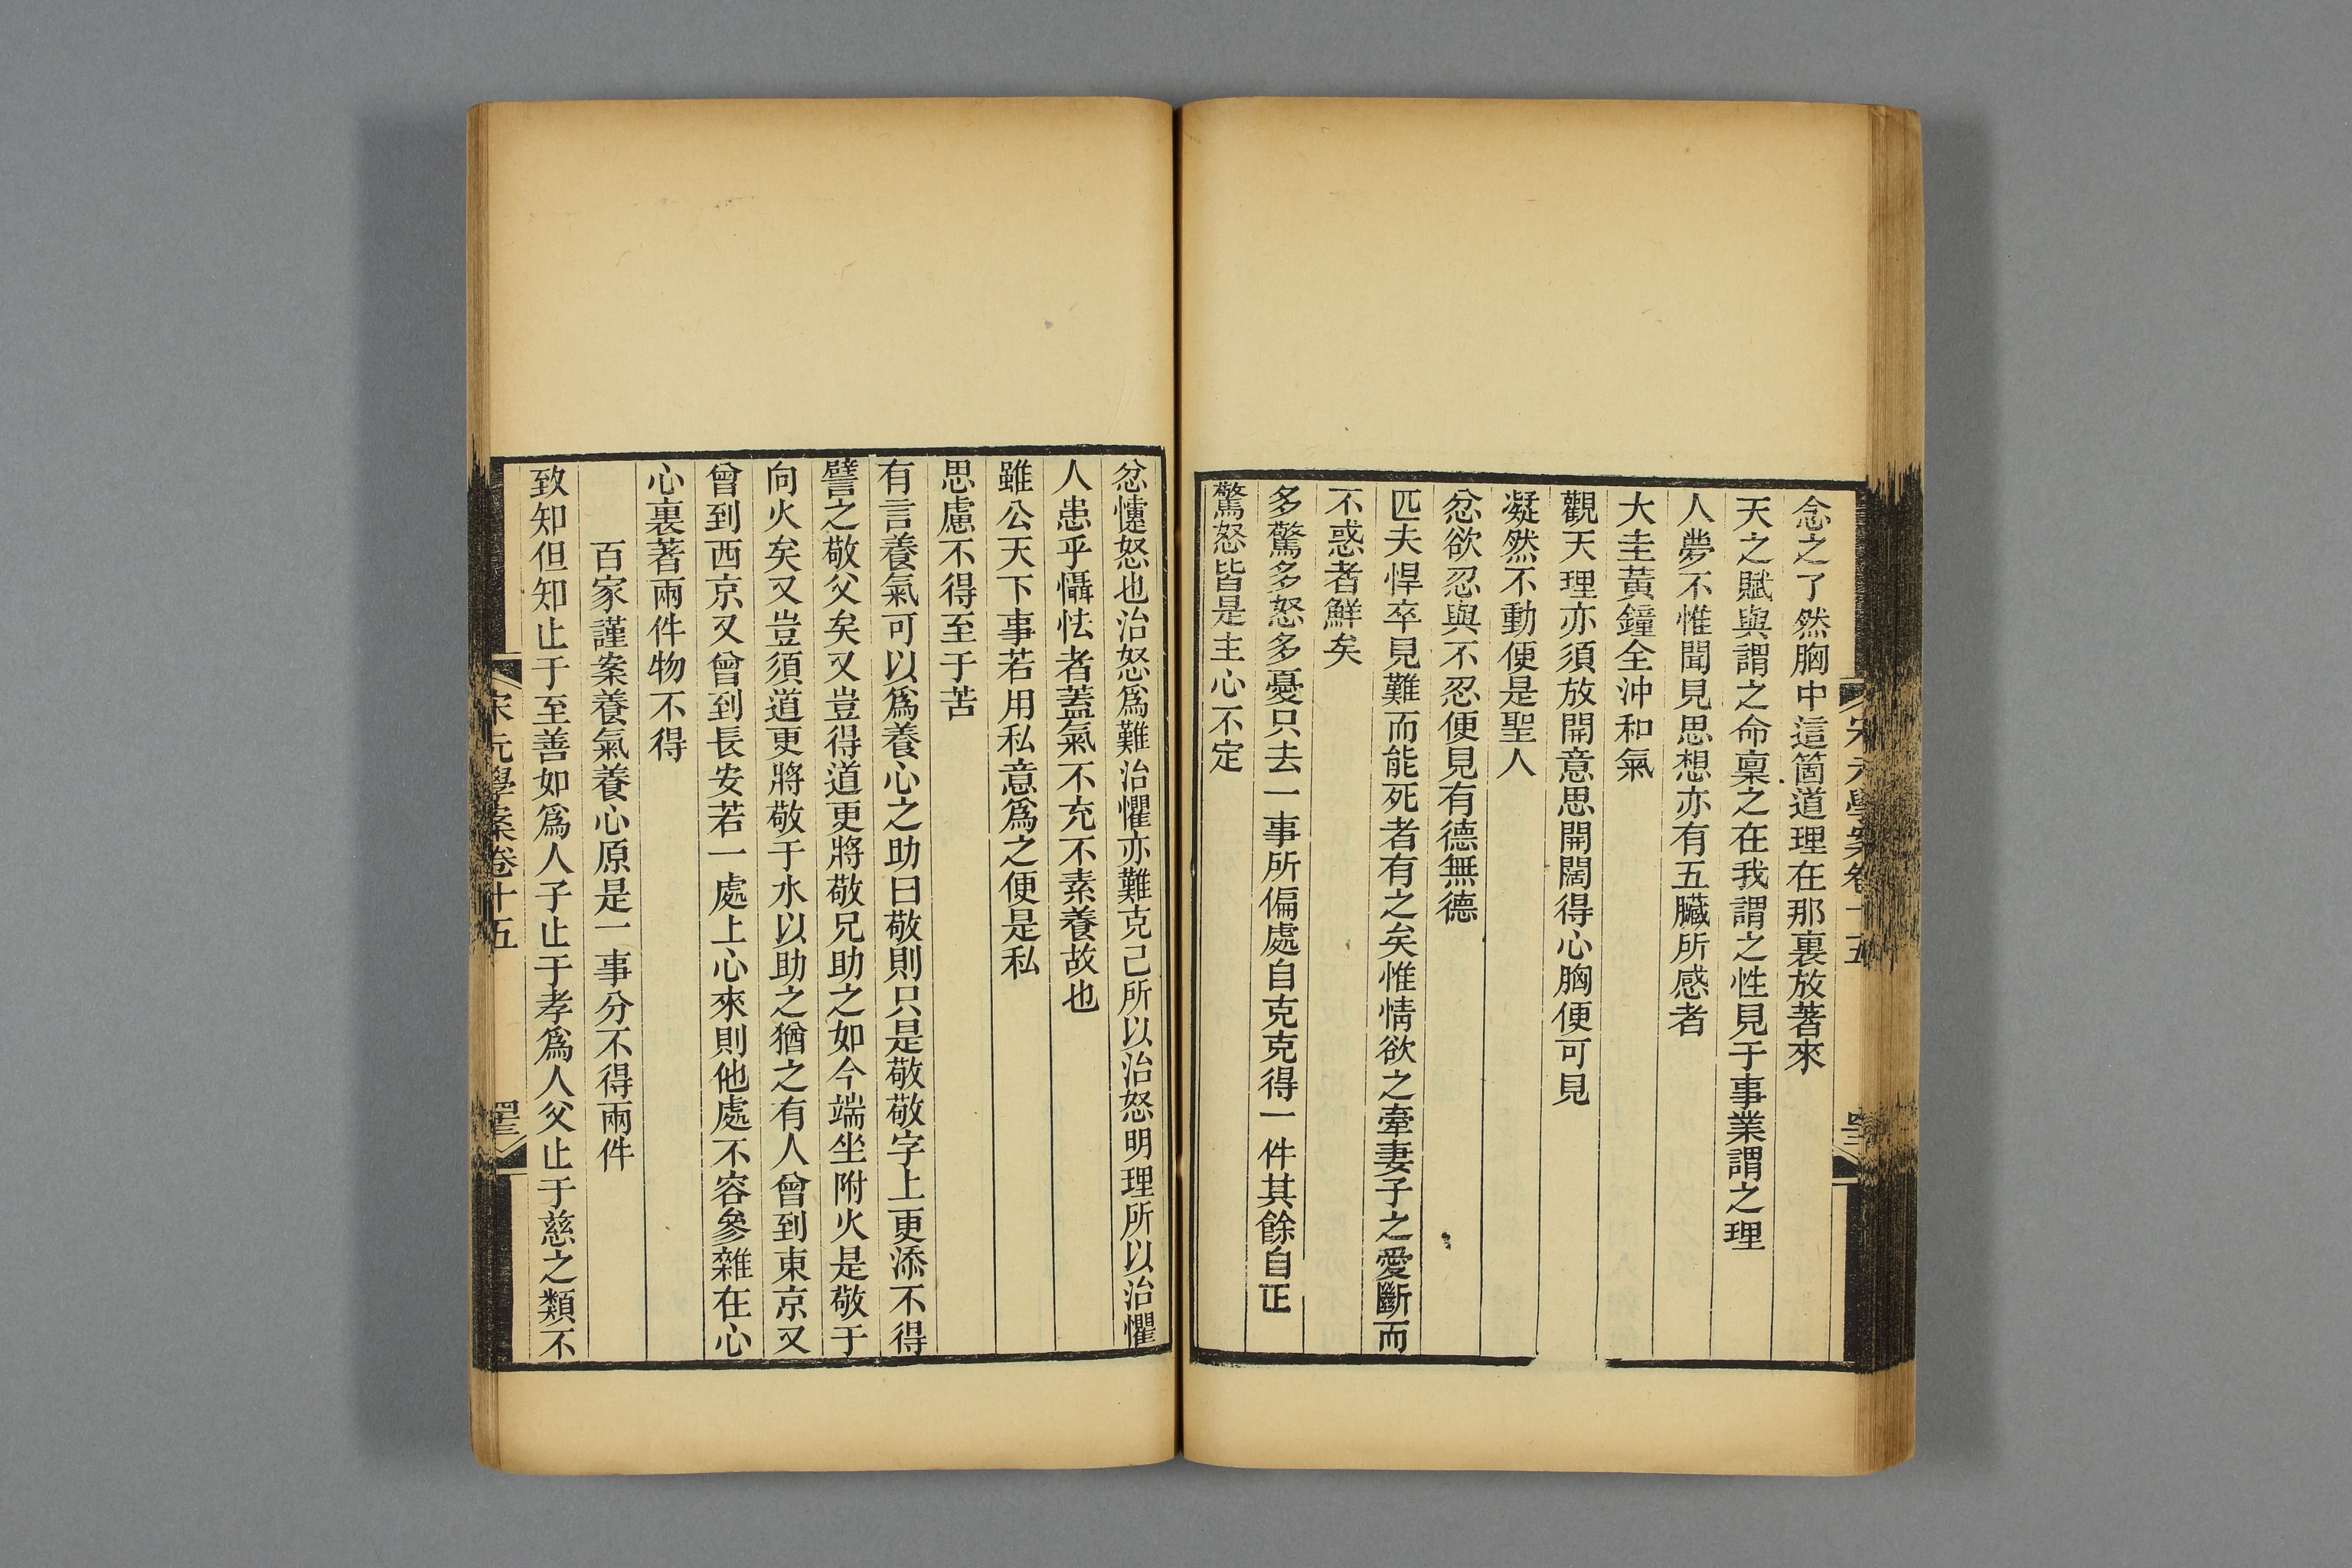 念之了然胸中這箇道理在那裏放著來
天之賦與謂之命稟之在我謂之性見于事業謂之理
人夢不惟聞見思想亦有五臟所感者
大圭黃鐘全沖和氣
觀天理亦須放開意思開闊得心胸便可見
凝然不動便是聖人
忿欲忍與不忍便見有德無德
匹夫悍卒見難而能死者有之矣惟情欲之牽妻子之愛斷而
不惑者鮮矣
多驚多怒多憂只去一事所偏處自克克得一件其餘自正
驚怒皆是主心不定
忿懥怒也治怒爲難治懼亦難克己所以治怒明理所以治懼
人患乎懾怯者蓋氣不充不素養故也
雖公天下事若用私意爲之便是私
思慮不得至于苦
有言養氣可以爲養心之助曰敬則只是敬敬字上更添不得
譬之敬父矣又豈得道更將敬兄助之如今端坐附火是敬于
向火矣又豈須道更將敬于水以助之猶之有人曾到東京又
曾到西京又曾到長安若一處上心來則他處不容參雜在心
心裏著兩件物不得
百家謹案養氣養心原是一事分不得兩件
致知但知止于至善如爲人子止于孝爲人父止于慈之類不
宋元學案卷十五